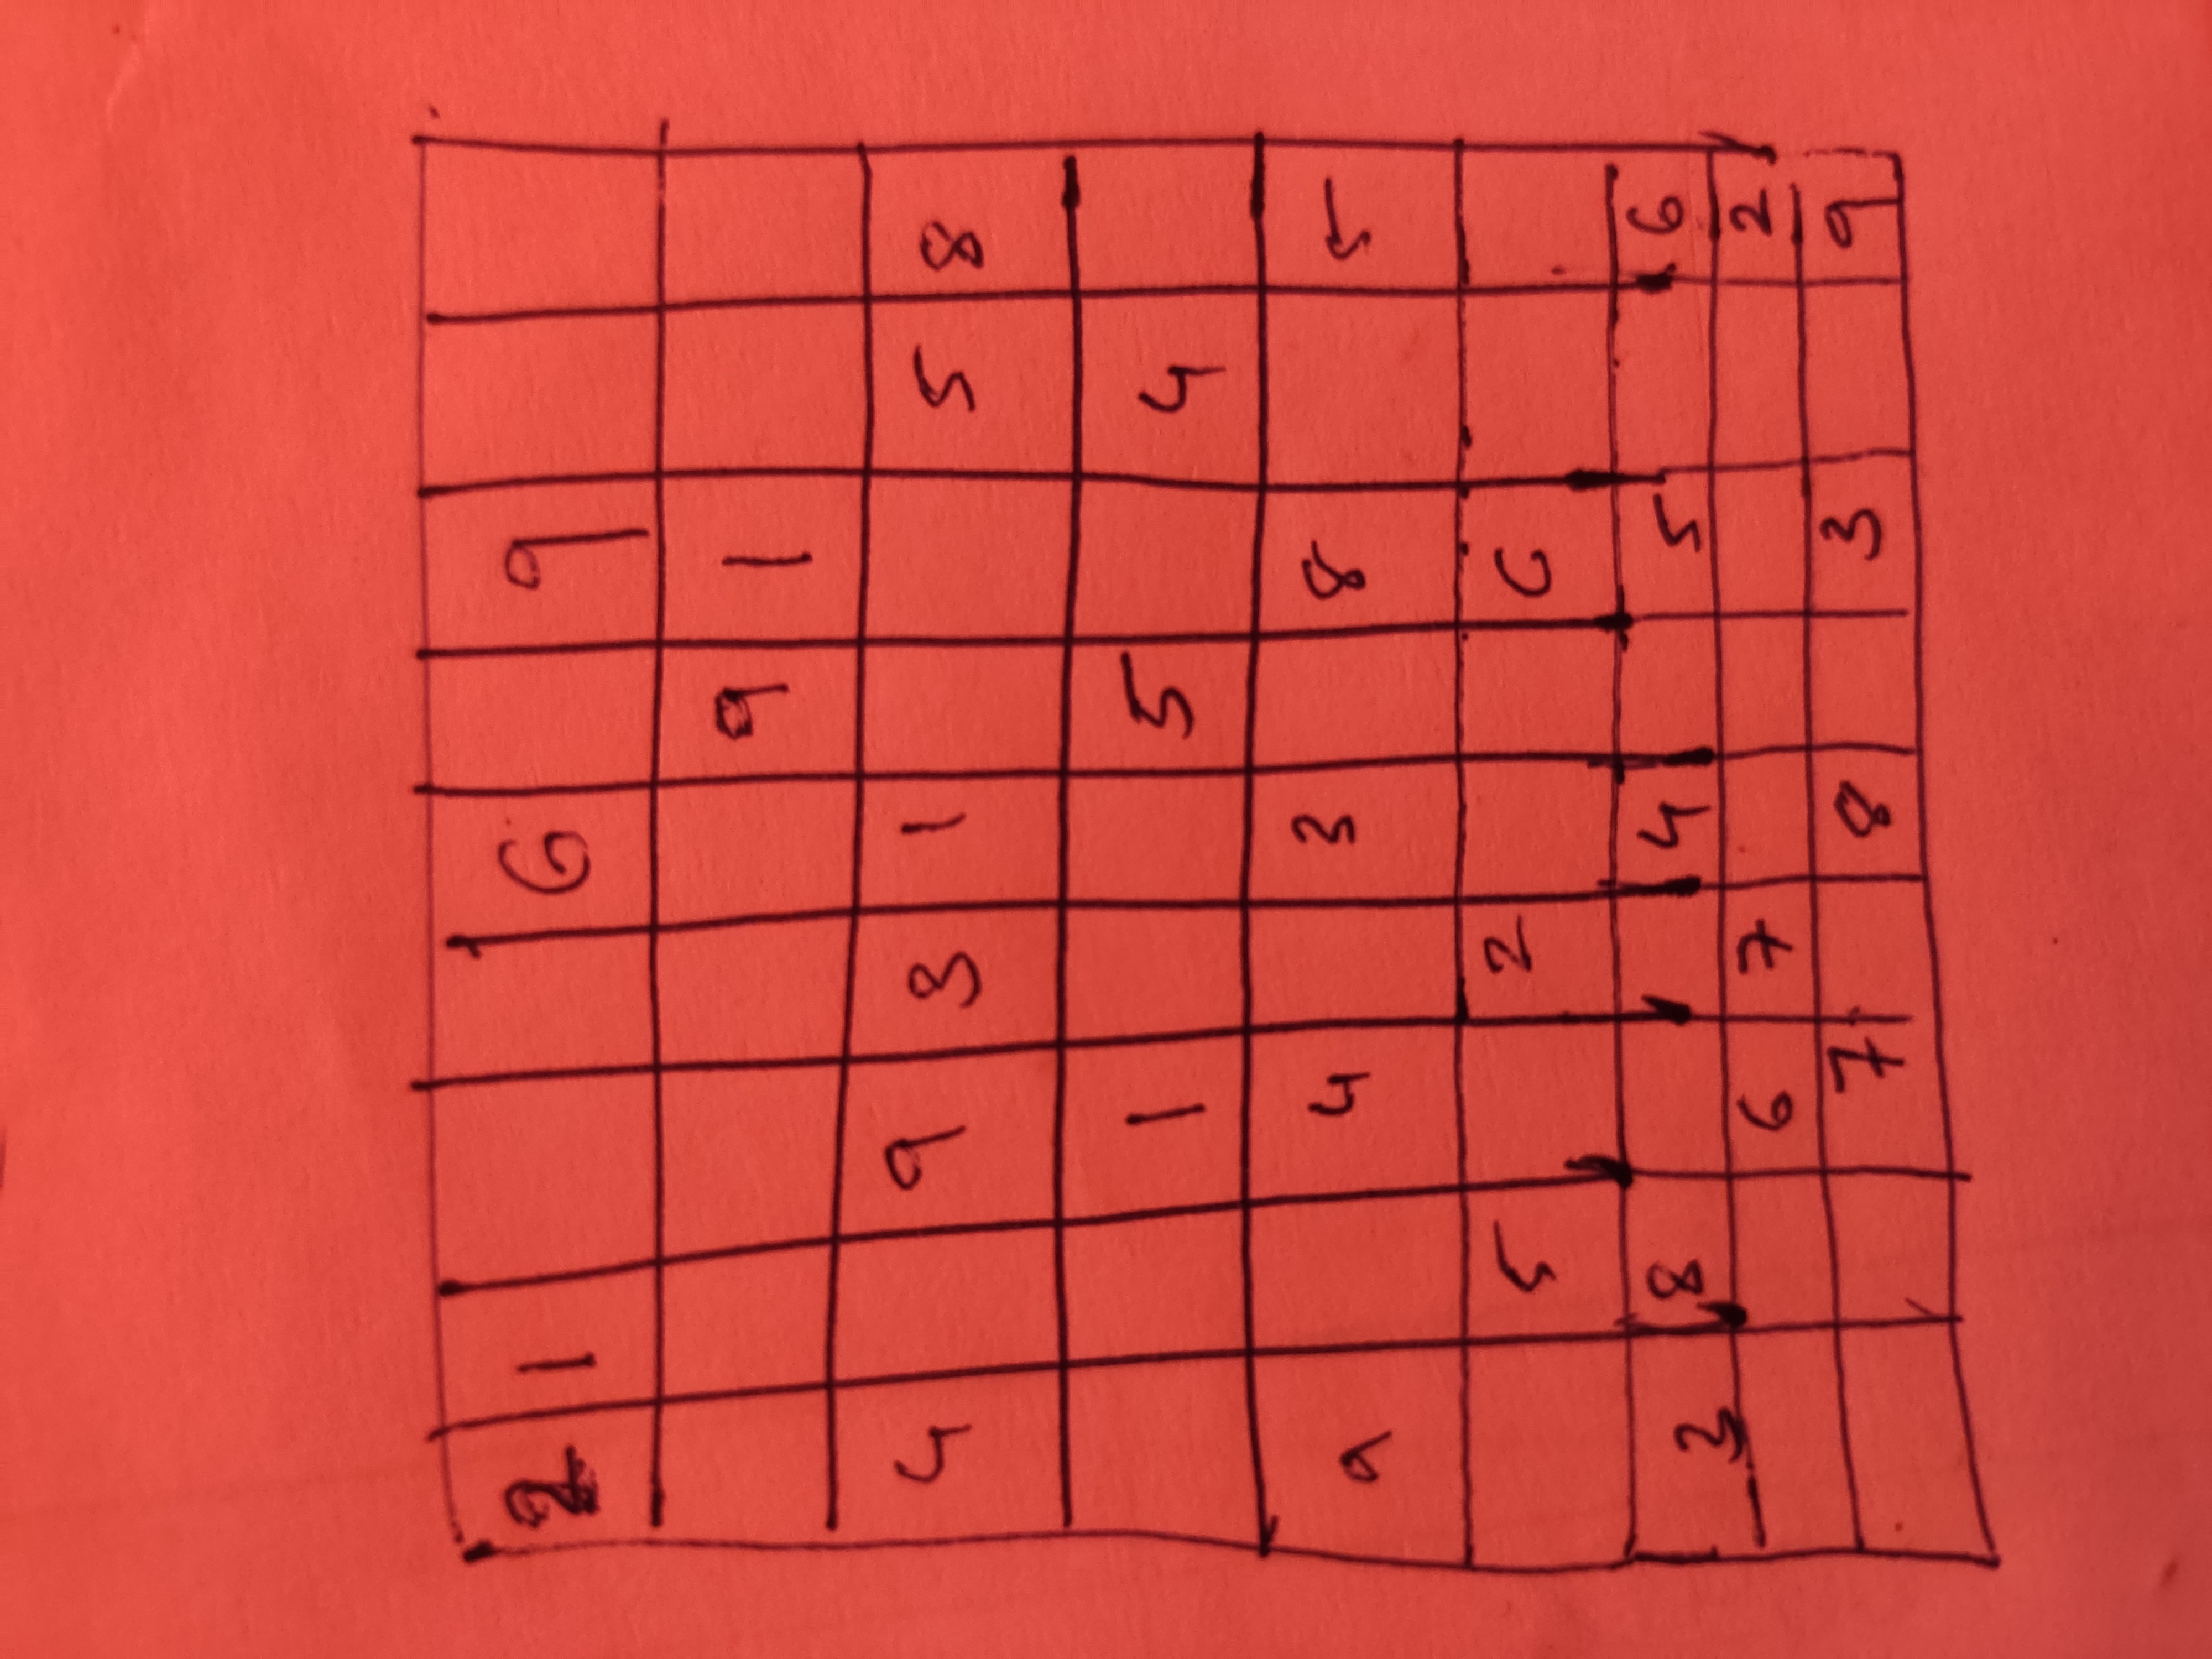 2 1 6 9
9 1
4 9 3 1 5 8
1 5 4
9 4 3 8 5
5 2 6
3 8 4 5 6
6 7 2
7 8 3 9